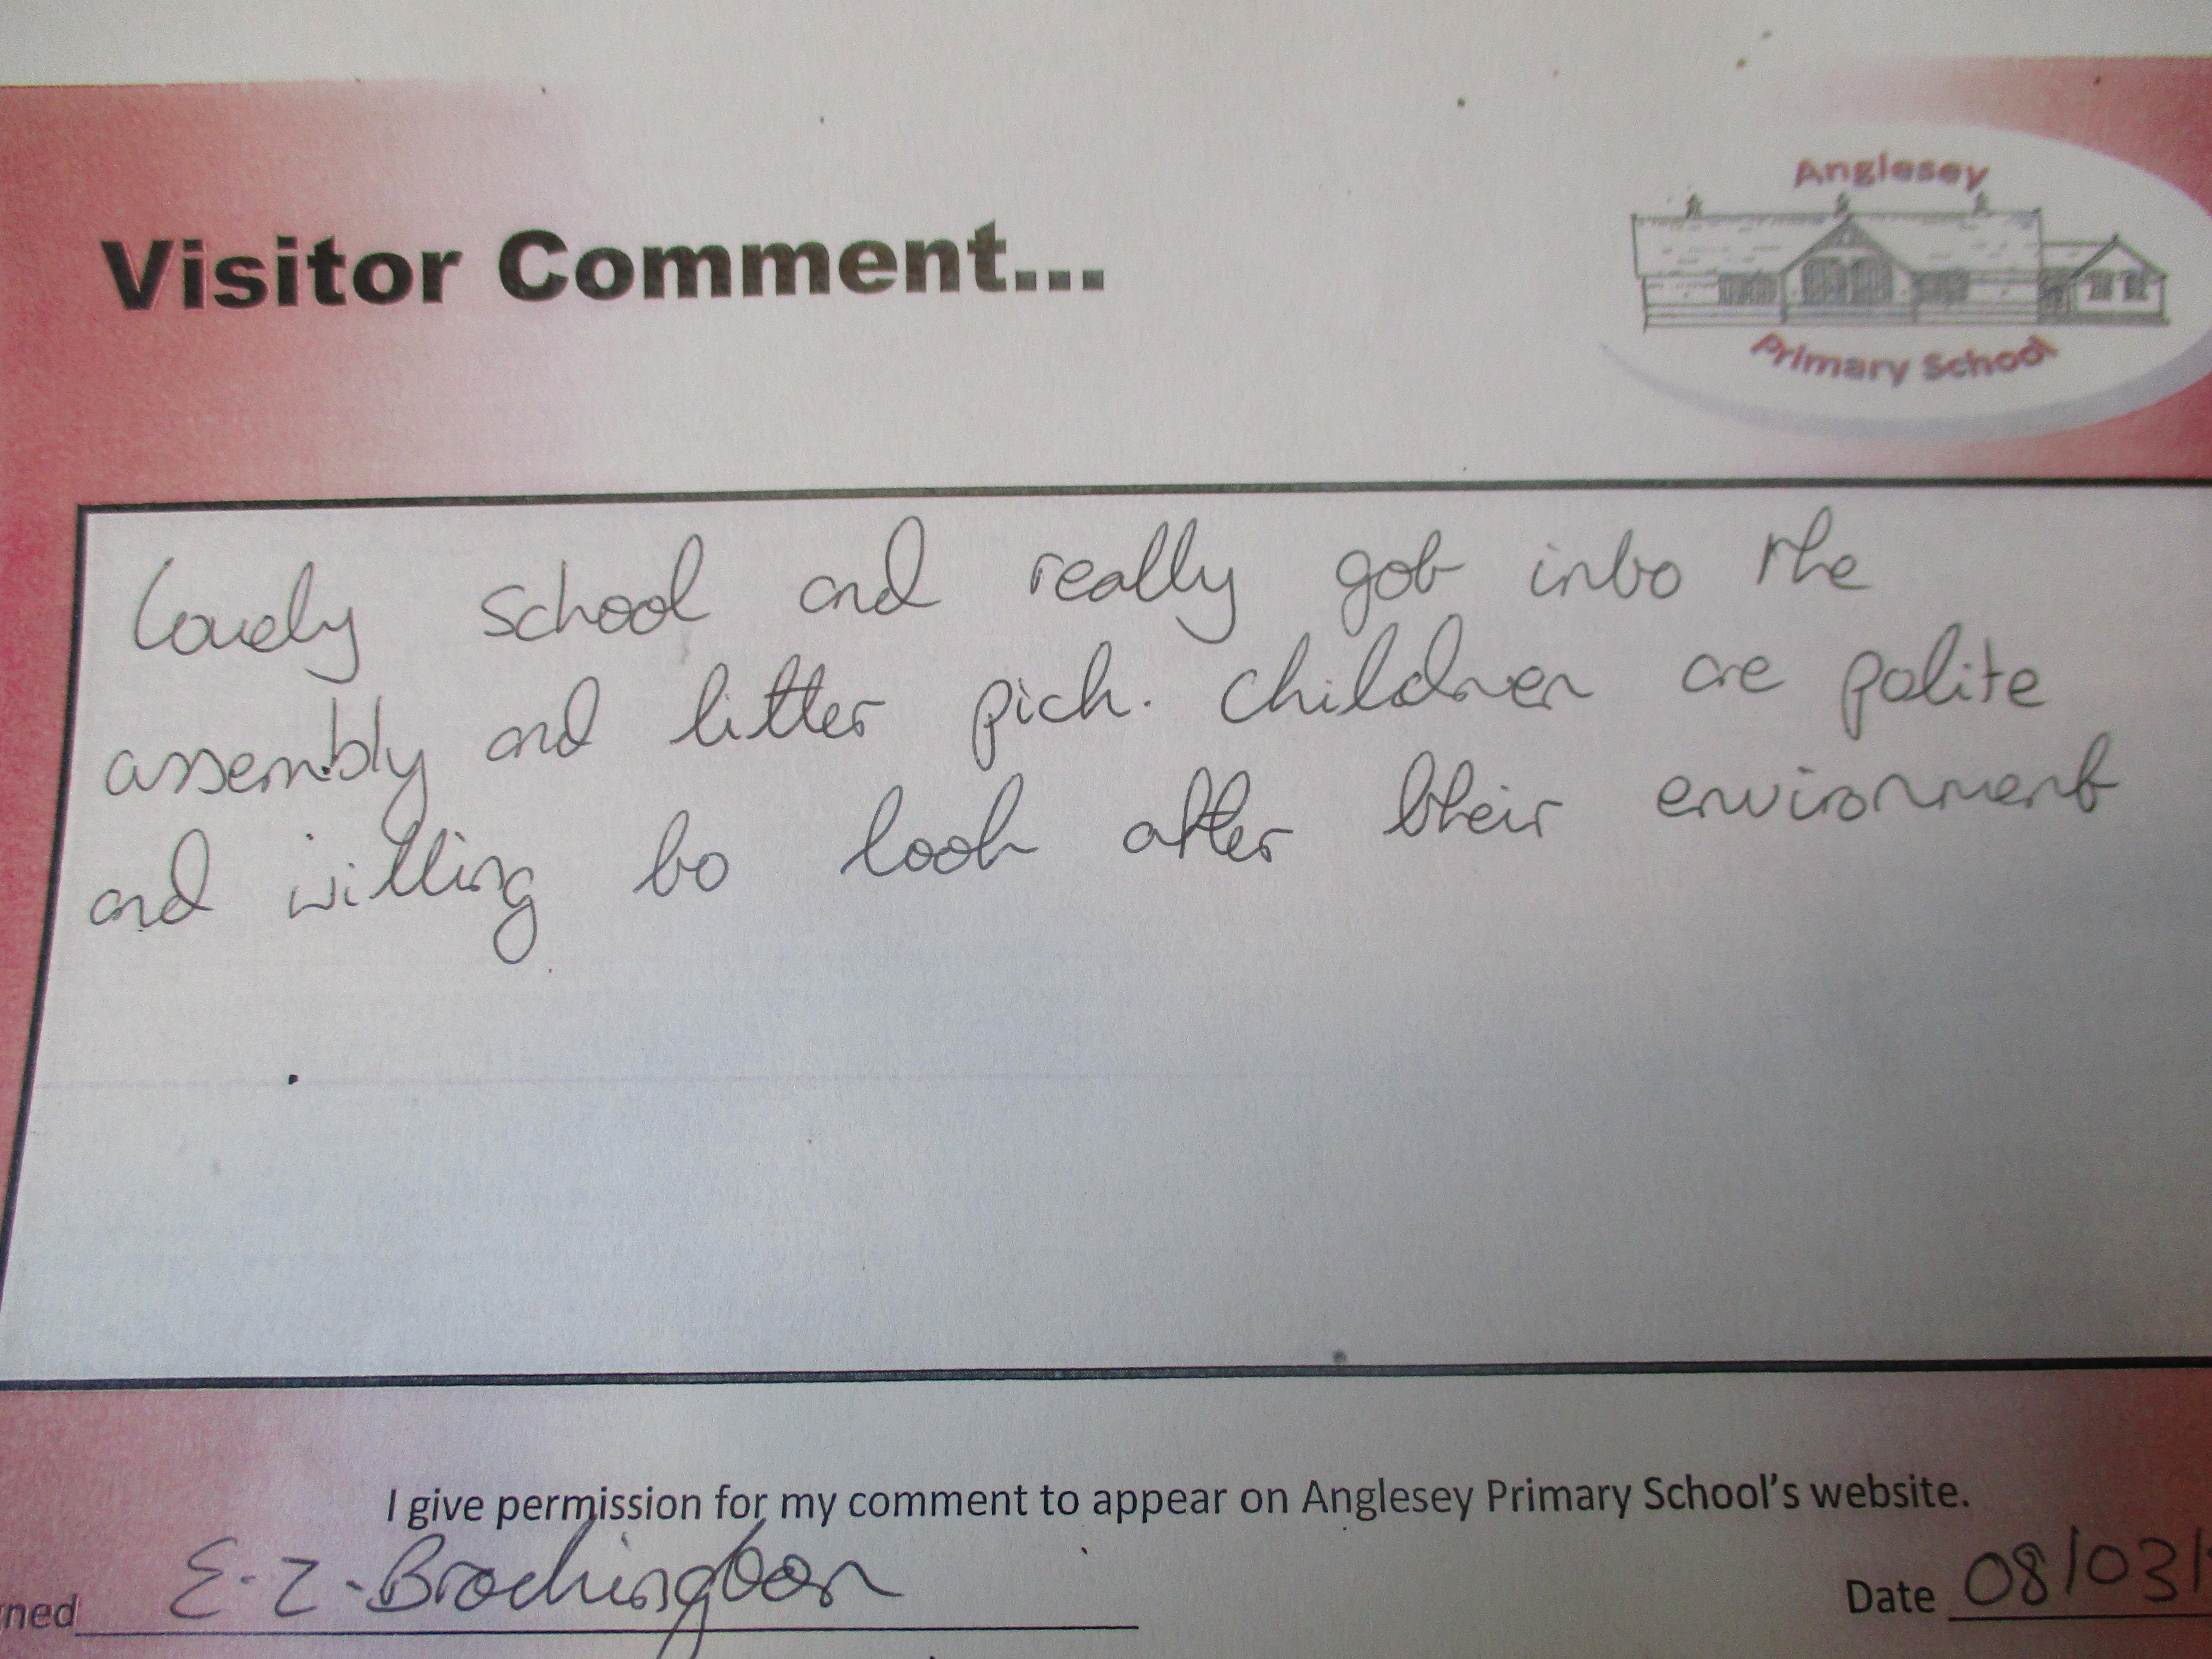 Anglesey
Visitor Comment...
Primary School
Lovely school and really got into the
assembly and litter pick. Children are polite
and willing to look after their environment
I give permission for my comment to appear on Anglesey Primary School's website.
ned E. Z. Brockington Date 08/03/